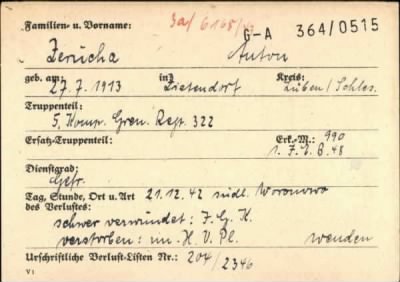 3a/6165/42
G-A 364/0515
Familien- u. Vorname:
Zerucha Anton
geb. am: in: Kreis:
27.7.1913 Lüben/Schles.
Truppenteil:
5. Komp. Gren. Regt. 322
Ersatz-Truppenteil: Erk.-M.: 990
Dienstgrad:
Gefr.
Tag, Stunde, Ort u. Art 21.12.42 südl. Woronowo
des Verlustes:
schwer verwundet: I.G.K.
verstorben: im H.V.Pl. wenden
Urschriftliche Verlust-Listen Nr.: 204/2346
V 1